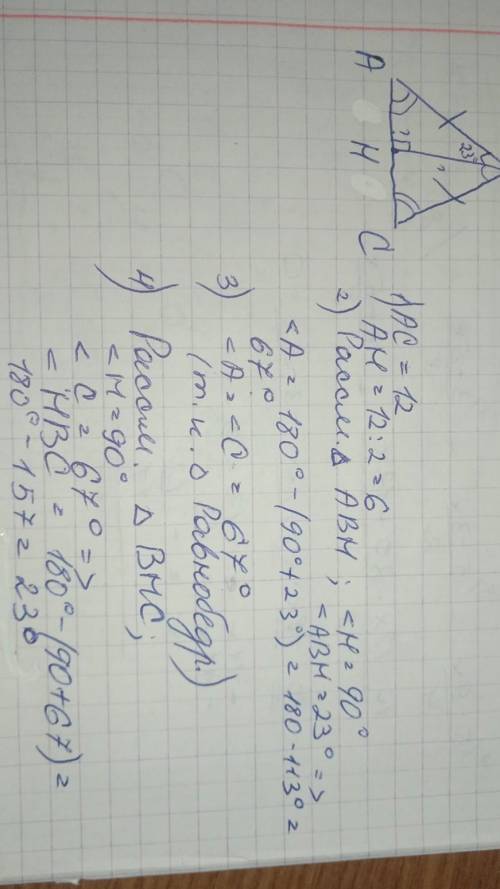 A
H
C
23°
1) AC = 12
AH = 12 : 2 = 6
2) Рассм. △ ABH; <H = 90°
<ABH = 23° =>
<A = 180° - (90° + 23°) = 180 - 113° =
67°
3) <A = <C = 67°
(т.к. △ Равнобедр.)
4) Рассм. △ BHC;
<H = 90°
<C = 67° =>
<HBC = 180° - (90 + 67) =
180° - 157 = 23°